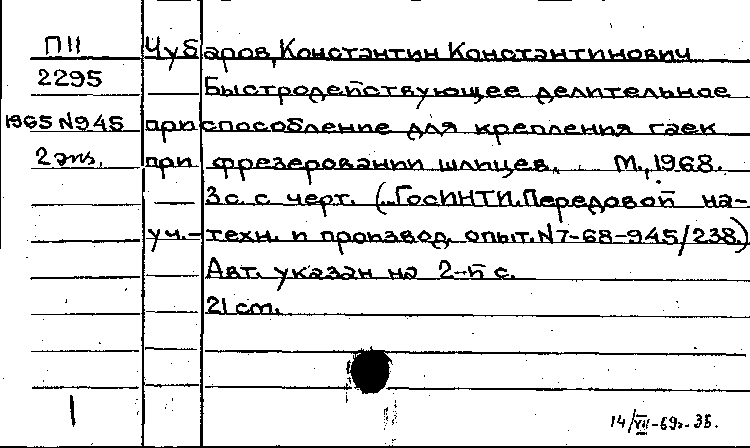 П11 Чубаров, Константин Константинович
2295 Быстродействующее делительное
1965 N945 приспособление для крепления гаек
2 экз. при фрезеровании шлицев. М., 1968.
3 с. с черт. (..ГосИНТИ. Передовой на-
уч.-техн. и производ. опыт. N7-68-945/238.)
Авт. указан на 2-й с.
21 см.
1 14/VII-69г. 35.